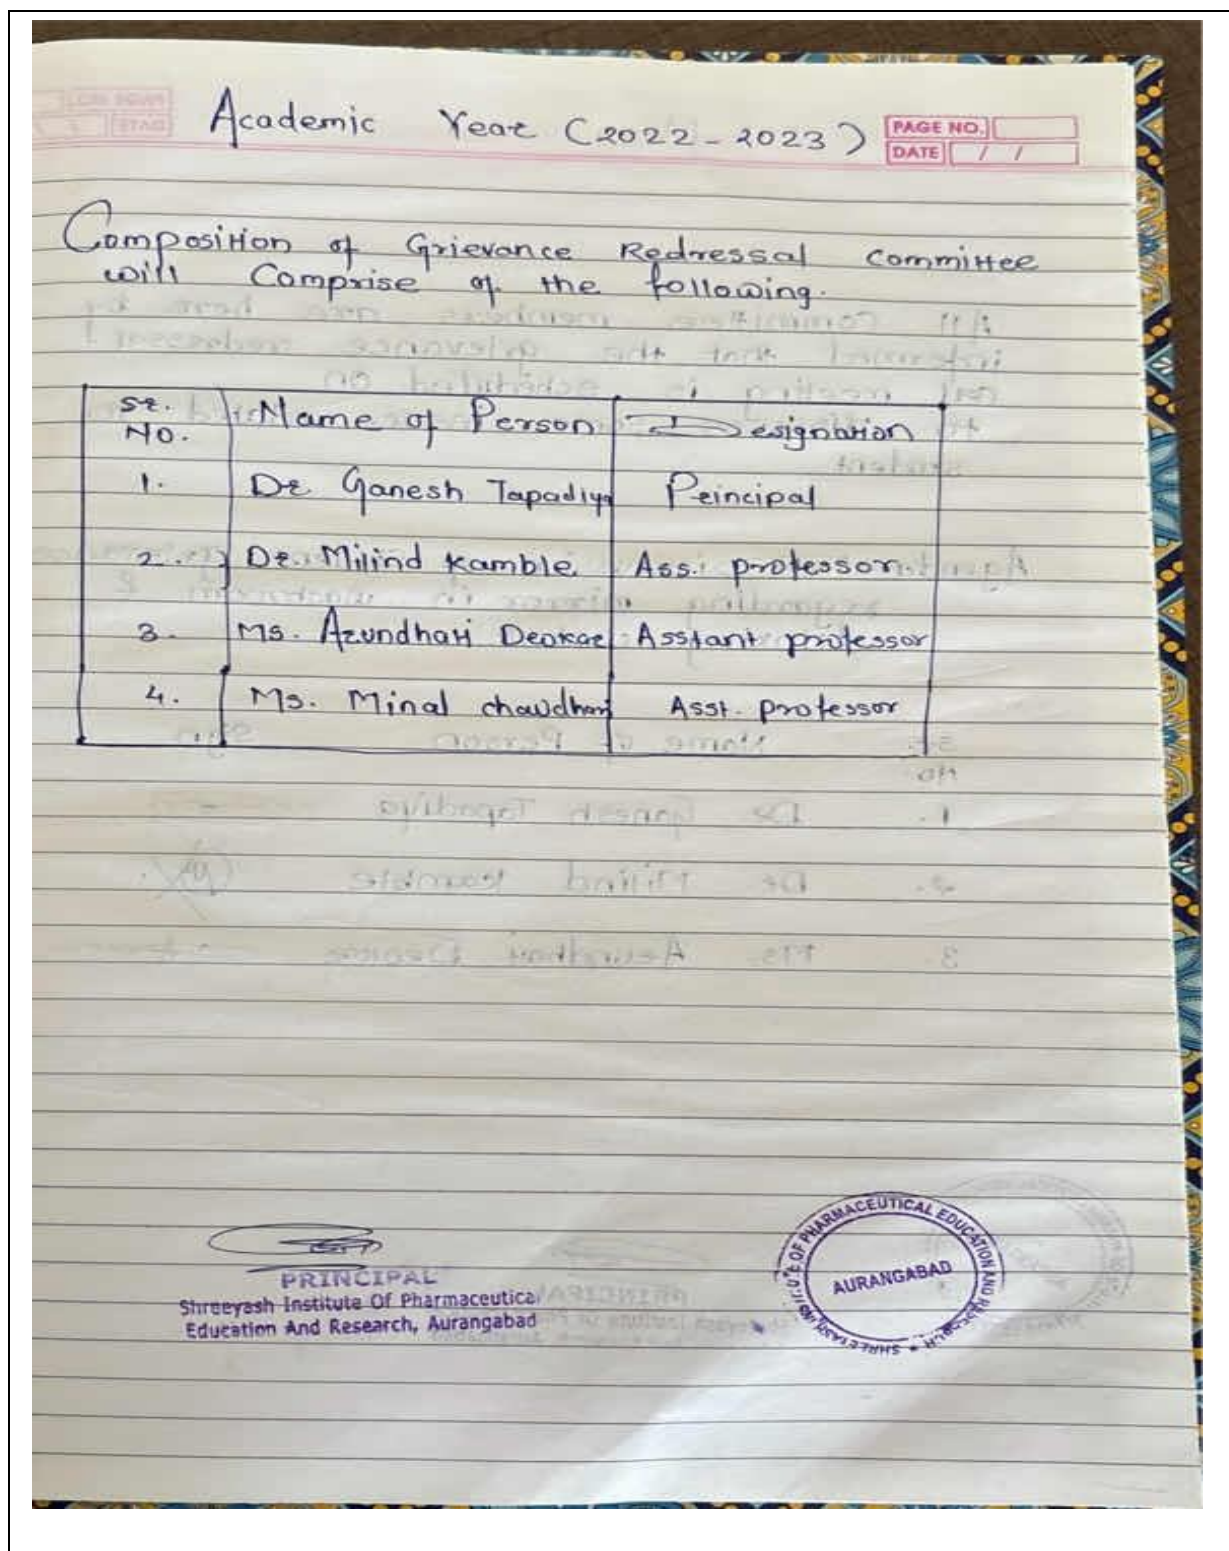 Academic Year (2022-2023)
PAGE NO.
DATE / /
Composition of Grievance Redressal committee
will Comprise of the following.
Sr. No. Name of Person Designation
1. Dr Ganesh Tapadiya Principal
2. Dr. Milind Kamble Ass. professor.
3. Ms. Arundhati Deokar Asstant professor
4. Ms. Minal chaudhari Asst. professor
PRINCIPAL
Shreeyash Institute Of Pharmaceutical
Education And Research, Aurangabad
SHREEYASH INSTITUTE OF PHARMACEUTICAL EDUCATION AND RESEARCH
AURANGABAD